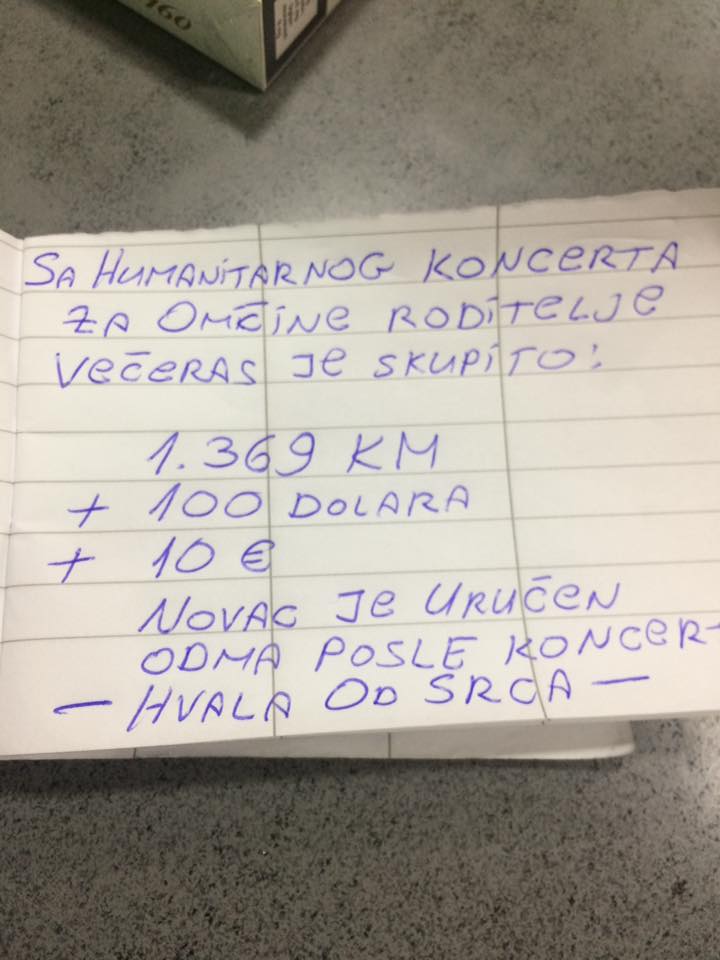 160
SA HUMANITARNOG KONCERTA
ZA OMČINE RODITELJE
VEČERAS JE SKUPITO:
1.369 KM
+ 100 DOLARA
+ 10 €
NOVAC JE URUČEN
ODMA POSLE KONCERT
— HVALA OD SRCA —